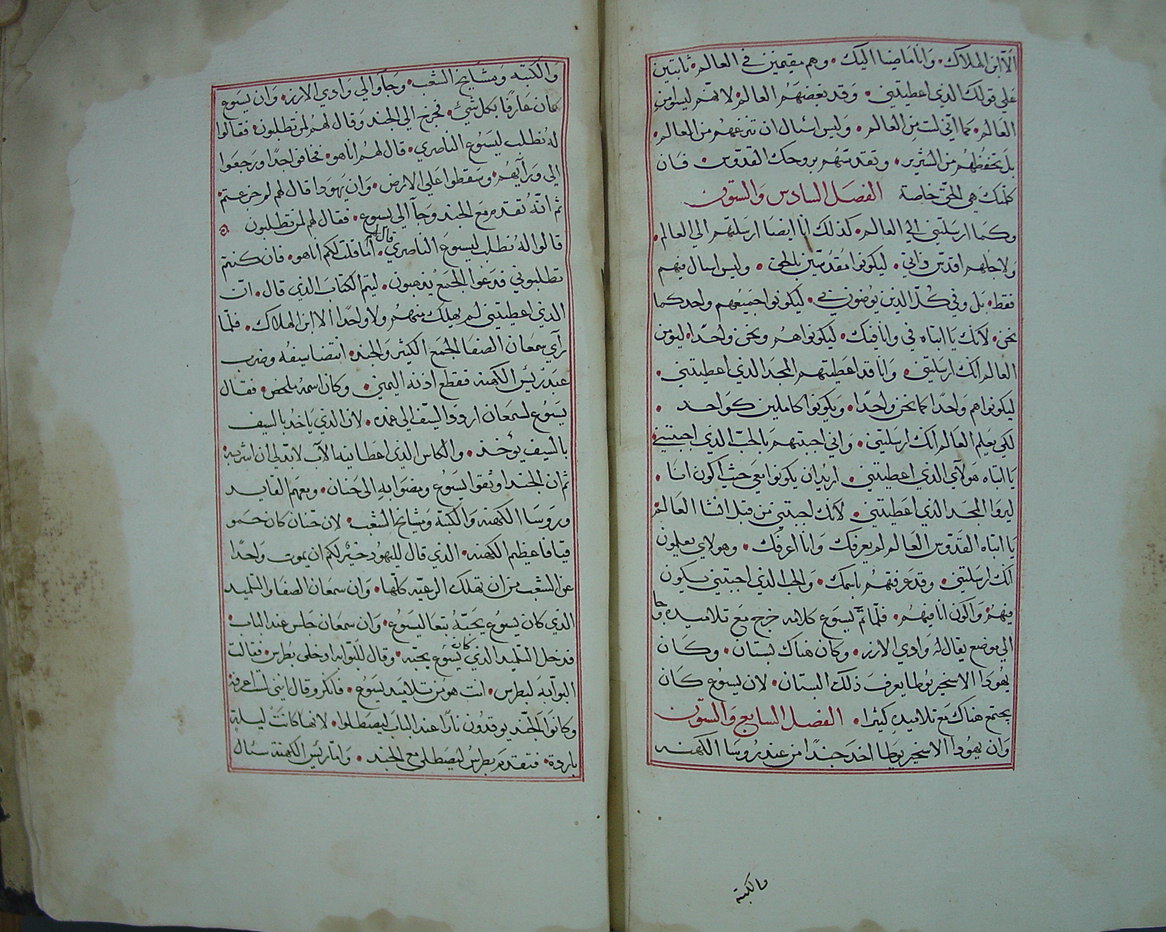 الا ابن الهلاك • وانا ماضيا اليك • وهم مقيمين في العالم • ثابتين
على قولك الذى اعطيتنى • وقد بغضهم العالم • لانهم ليسوا من
العالم • كما انى لست من العالم • وليس اسال ان تنزعهم من العالم •
بل تحفظهم من الشرير • وتقدسهم بروحك القدوس • فان
كلمتك هي الحق خاصة الفصل السادس والستون
وكما ارسلتنى الى العالم • كذلك انا ايضا ارسلتهم الى العالم •
ولاجلهم اقدس ذاتى • ليكونوا مقدسين بالحق • وليس اسال فيهم
فقط • بل وفي كل الذين يومنون في • ليكونوا جميعهم واحد كما
نحن • لانك يا ابتاه في وانا فيك • ليكونوا هم ونحن واحدا • ليومن
العالم انك ارسلتنى • وانا قد اعطيتهم المجد الذى اعطيتنى •
ليكونوا هم واحدا كما نحن واحدا • ويكونوا كاملين كواحد •
لكى يعلم العالم انك ارسلتنى • وانى احببتهم بالحب الذى احببتنى
يا ابتاه هولاى الذى اعطيتنى • اريد ان يكونوا معى حيث اكون انا •
ليروا المجد الذى اعطيتنى • لانك احببتنى من قبل انشا العالم
يا ابتاه القدوس العالم لم يعرفك وانا اعرفك • وهولاى يعلمون
انك ارسلتنى • وقد عرفتهم باسمك • والحب الذى احببتنى يكون
فيهم واكون انا فيهم • فلما تم يسوع كلامه خرج مع تلاميده وجا
الى موضع يقال له وادى الارز • وكان هناك بستان • وكان
يهودا الاسخريوطا يعرف ذلك البستان • لان يسوع كان
يجتمع هناك مع تلاميده كثيرا • الفصل السابع والستون
وان يهودا الاسخريوطا اخد جندا من عند روسا الكهنه
والكتبة
والكتبه ومشايخ الشعب • وجاو الى وادى الارز • وان يسوع
كان عارفا بكل شئ • فخرج الى الجند وقال لهم لمن تطلبون • فقالوا
له نطلب ليسوع الناصرى • قال لهم انا هو • فخافوا جدا ورجعوا
الى ورايهم • وسقطوا على الارض • وان يهودا قال لهم لم جزعتم
ثم انه تقدم مع الجند وجا الى يسوع • فقال لهم لمن تطلبون
قالوا له نطلب ليسوع الناصرى • قال لهم انا قلت لكم انا هو • فان كنتم
تطلبونى فدعوا الجمع يدهبون • ليتم الكتاب الذى قال • ان
الذى اعطيتنى لم يهلك منهم ولا واحدا الا ابن الهلاك • فلما
راى سمعان الصفا الجمع الكثير والجند • انتضا سيفه وضرب
عبد ريس الكهنه فقطع اودنه اليمنى • وكان اسمه ملخص • فقال
يسوع لسمعان اردد السيف الى غمده • لان الذى ياخد بالسيف
بالسيف يوخد • والكاس الذى اعطانيه الاب لابد لى ان اشربه
ثم ان الجند اوثقوا ليسوع ومضوا به الى حنان • ومعهم القايد
وروسا الكهنه والكتبة ومشايخ الشعب • لان حنان كان حمو
قيافا عظيم الكهنه • الذى قال لليهود خير لكم ان يموت واحدا
عن الشعب من ان تهلك الرعيه كلها • وان سمعان الصفا والتلميد
الذى كان يسوع يحبه تبعا ليسوع • وان سمعان جلس عند الباب
فدخل التلميد الذى كان يسوع يحبه • وقال للبوابه ادخلى بطرس • فقالت
البوابه لبطرس • انت هو من تلاميد يسوع • فانكر وقال انى لست اعرفه
وكانوا الجند يوقدون نارا عند الباب ليصطلوا • لانها كانت ليلة
باردة • فتقدم بطرس ليصطلى مع الجند • وان ريس الكهنة سال